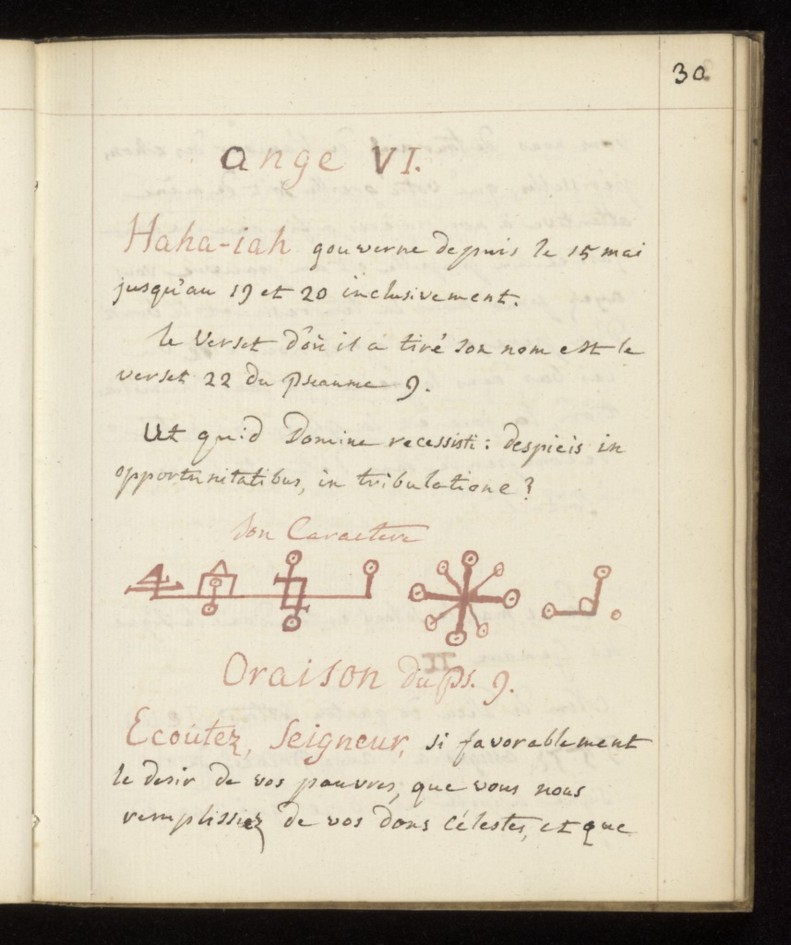 30
Ange VI.
Haha-iah gouverne depuis le 15 mai
jusqu'au 19 et 20 inclusivement.
le Verset d'où il a tiré son nom est le
verset 22 du pseaume 9.
Ut quid Domine recessisti: despicis in
opportunitatibus, in tribulatione?
Son Caractere
Oraison du ps. 9.
Ecoutez, Seigneur, si favorablement
le desir de vos pauvres, que vous nous
remplissiez de vos dons célestes, et que